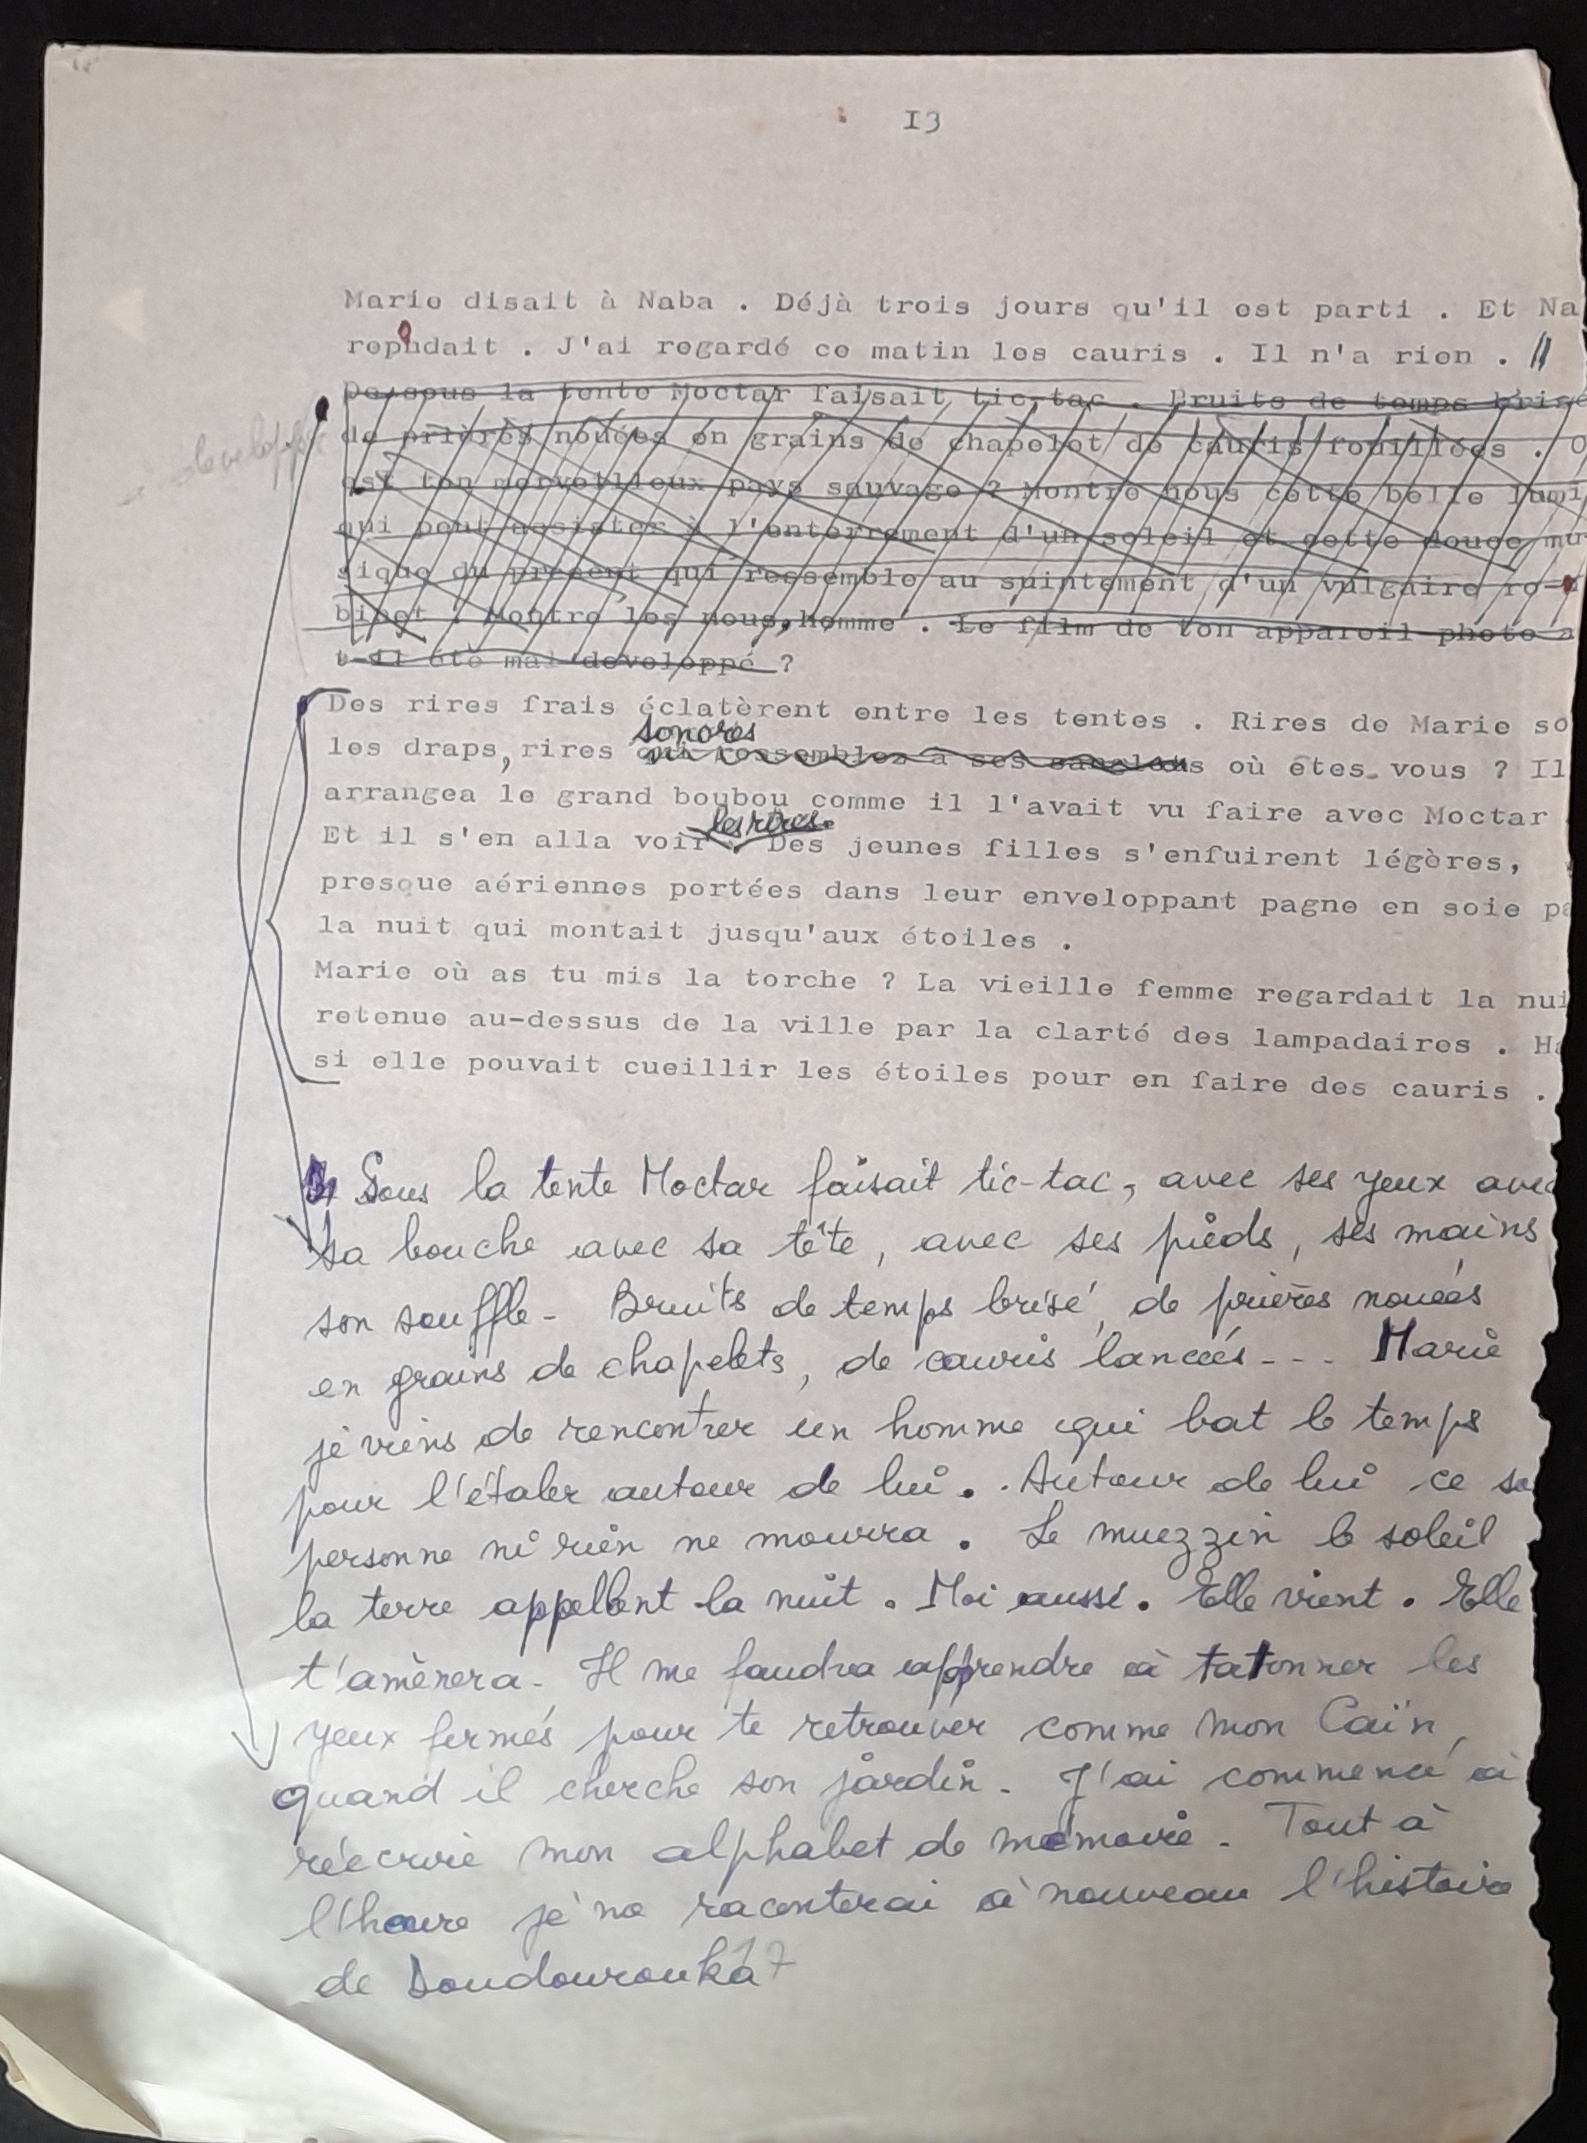 13
Marie disait à Naba . Déjà trois jours qu'il est parti . Et Na
repndait . J'ai regardé ce matin les cauris . Il n'a rien . //
o
Dessous la tente Moctar faisait tic,tac . Bruits de temps brisé
developper
de prières nouées en grains de chapelet de cauris fouillées . O
est ton merveilleux pays sauvage ? Montre nous cette belle lumi
qui peut assister à l'enterrement d'un soleil et cette douce mu
sique du présent qui ressemble au suintement d'un vulgaire ro-
binet . Montre les nous,homme . Le film de ton appareil photo a
t-il été mal developpé ?
Des rires frais éclatèrent entre les tentes . Rires de Marie so
sonores
les draps,rires qui ressemblez à ses sanglots où êtes-vous ? Il
arrangea le grand boubou comme il l'avait vu faire avec Moctar
les rires.
Et il s'en alla voir . Des jeunes filles s'enfuirent légères,
presque aériennes portées dans leur enveloppant pagne en soie pa
la nuit qui montait jusqu'aux étoiles .
Marie où as tu mis la torche ? La vieille femme regardait la nui
retenue au-dessus de la ville par la clarté des lampadaires . Ha
si elle pouvait cueillir les étoiles pour en faire des cauris .
Sous la tente Moctar faisait tic-tac, avec ses yeux avec
sa bouche avec sa tête, avec ses pieds, ses mains
son souffle - Bruits de temps brisé, de prières nouées
en grains de chapelets, de cauris lancées - - - Marie
je viens de rencontrer un homme qui bat le temps
pour l'étaler autour de lui . . Autour de lui ce so
personne ni rien ne mourra . Le muezzin le soleil
la terre appellent la nuit . Moi aussi . Elle vient . Elle
t'amènera - Il me faudra apprendre à tatonner les
yeux fermés pour te retrouver comme mon Caïn,
quand il cherche son jardin - J'ai commencé à
réecrire mon alphabet de mémoire - Tout à
l'heure je me raconterai à nouveau l'histoire
de Doudourouka